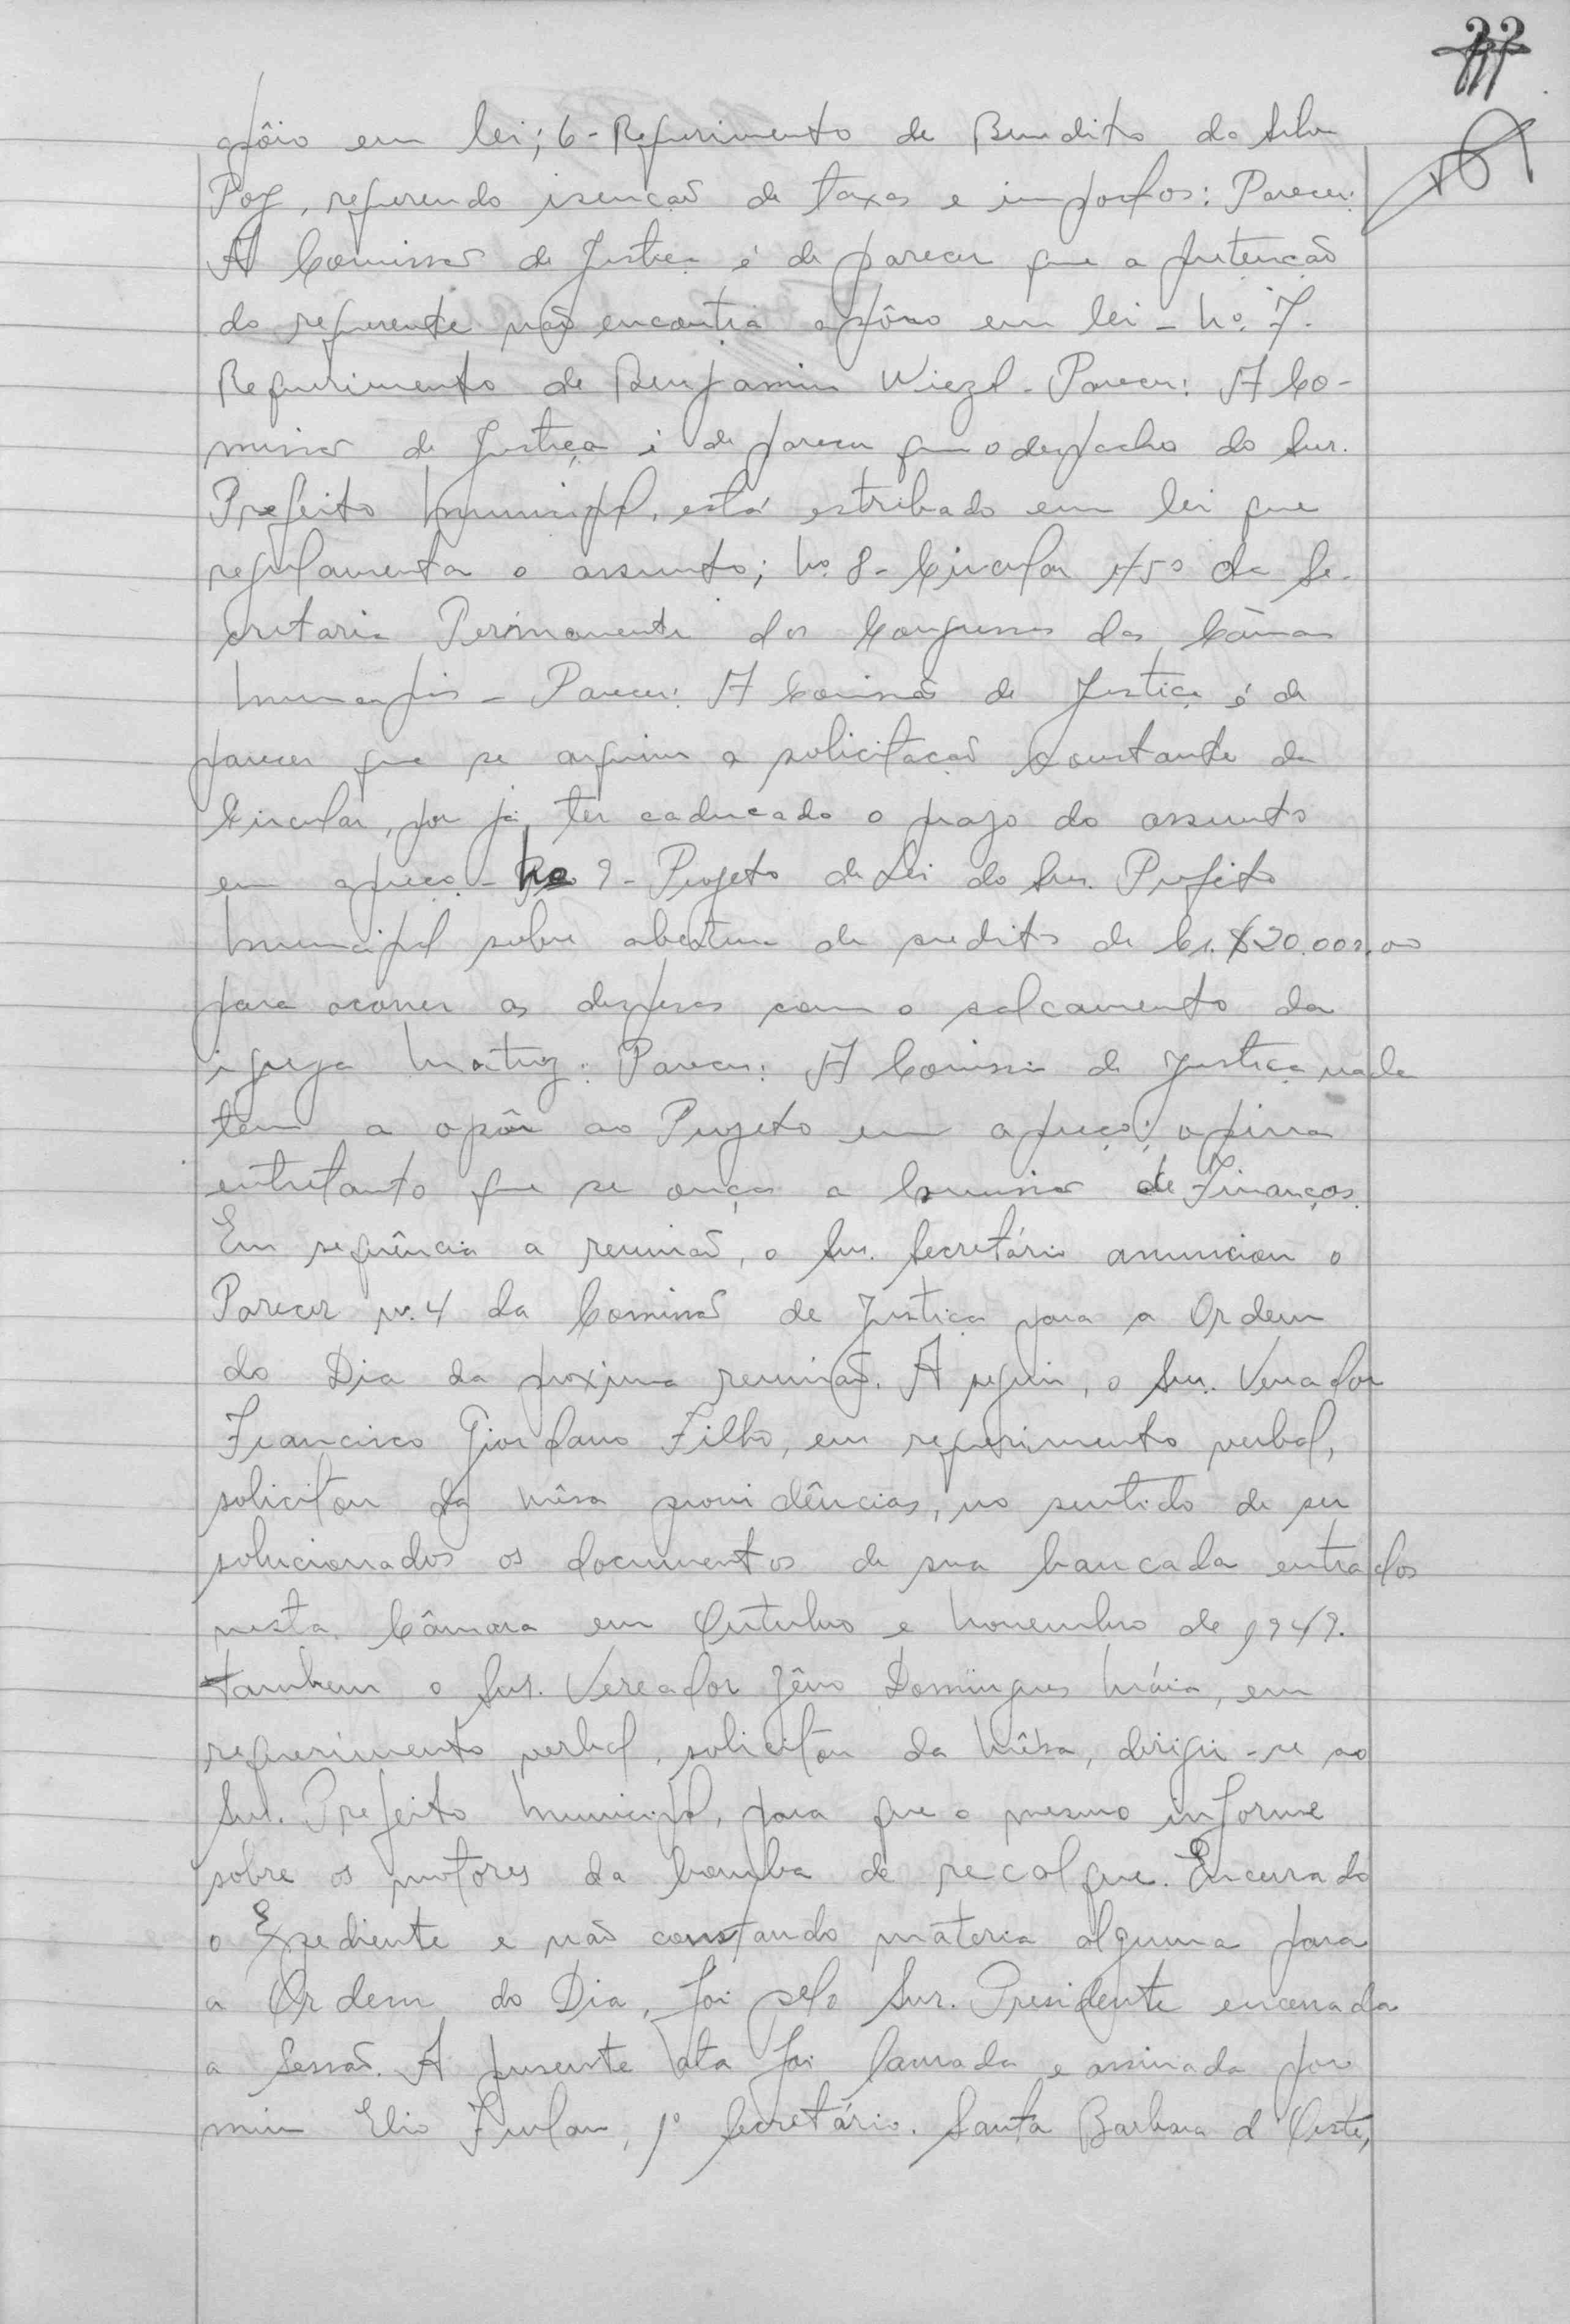 apôio em lei; 6 - Requerimento de Benedito da Silva
, requerendo isenção de taxas e impostos: Parecer:
A Comissão de Justiça é de parecer que a pretenção
do requerente não encontra apôio em lei - No. 7.
Requerimento de Benjamin Wiezel - Parecer: A Co-
missão de Justiça é de parecer que o despacho do Snr.
Prefeito Municipal, está estribado em lei que
regulamenta o assunto; No. 8 - Circular 1/50 da Se-
cretaria Permanente dos Congressos das Câmaras
Municipais - Parecer: A Comissão de Justiça é de
parecer que se arquive a solicitação constante da
Circular, por já ter caducado o prazo do assunto
em apreço - No 9 - Projeto de Lei do Snr. Prefeito
Municipal sobre abertura de credito de Cr.$20.000,00
para ocorrer as despesas com o calçamento da
igreja Matriz: Parecer: A Comissão de Justiça nada
tem a opôr ao Projeto em apreço; opina
entretanto que se ouça a Comissão de Finanças.
Em sequência a reunião, o Snr. Secretário anunciou o
Parecer n.º 4 da Comissão de Justiça para a Ordem
do Dia da proxima reunião. A seguir, o Snr. Vereador
Francisco Giordano Filho, em requerimento verbal,
solicitou da mêsa providências, no sentido de ser
solucionados os documentos de sua bancada entrados
nesta Câmara em Outubro e Novembro de 1949.
Tambem o Snr. Vereador Zêno Domingues Maia, em
requerimento verbal, solicitou da Mêsa, dirigir-se ao
Snr. Prefeito Municipal, para que o mesmo informe
sobre os motores da bomba de recalque. Encerrado
o Expediente e não constando materia alguma para
a Ordem do Dia, foi pelo Snr. Presidente encerrada
a Sessão. A presente ata foi lavrada e assinada por
mim Elio Furlan, 1º Secretário. Santa Barbara d'Oeste,